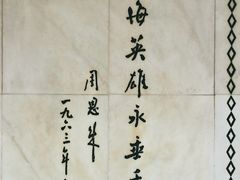 海英雄永垂
周恩来
一九六三年